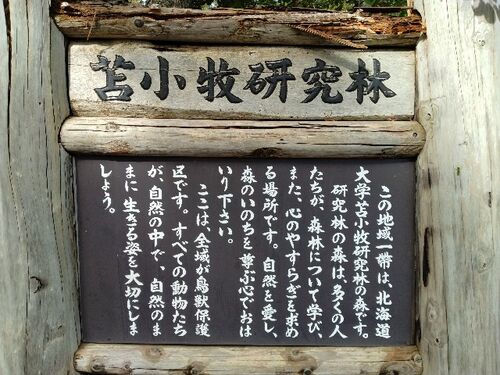 苫小牧研究林
この地域一帯は、北海道
大学苫小牧研究林の森です。
研究林の森は、多くの人
たちが、森林について学び、
また、心のやすらぎを求め
る場所です。自然を愛し、
森のいのちを尊ぶ心でおは
いり下さい。
ここは、全域が鳥獣保護
区です。すべての動物たち
が、自然の中で、自然のま
まに生きる姿を大切にしま
しょう。